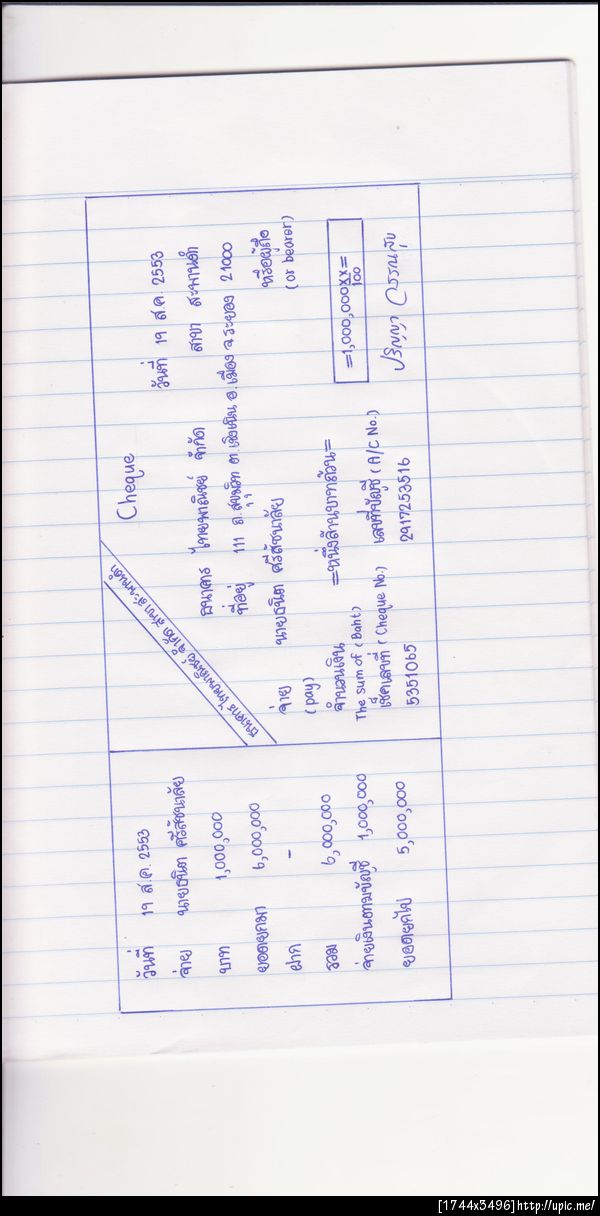 วันที่ 19 ส.ค. 2553
จ่าย นายธนิต ศรีสัชนาลัย
บาท 1,000,000
ยอดยกมา 6,000,000
ฝาก -
รวม 6,000,000
จ่ายเงินตามบัญชี 1,000,000
ยอดยกไป 5,000,000
ธนาคาร ไทยพาณิชย์ จำกัด สาขา สะพานดำ
Cheque
วันที่ 19 ส.ค. 2553
ธนาคาร ไทยพาณิชย์ จำกัด สาขา สะพานดำ
ที่อยู่ 111 ถ.สุขุมวิท ต.เชิงเนิน อ.เมือง จ.ระยอง 21000
จ่าย นายธนิต ศรีสัชนาลัย หรือผู้ถือ
(pay) (or bearer)
จำนวนเงิน =หนึ่งล้านบาทถ้วน= =1,000,000XX/100=
The sum of (Baht)
เช็คเลขที่ (Cheque No.) เลขที่บัญชี (A/C No.) ปริญญา
5351065 2917253516
[1744x3496]http://upic.me/